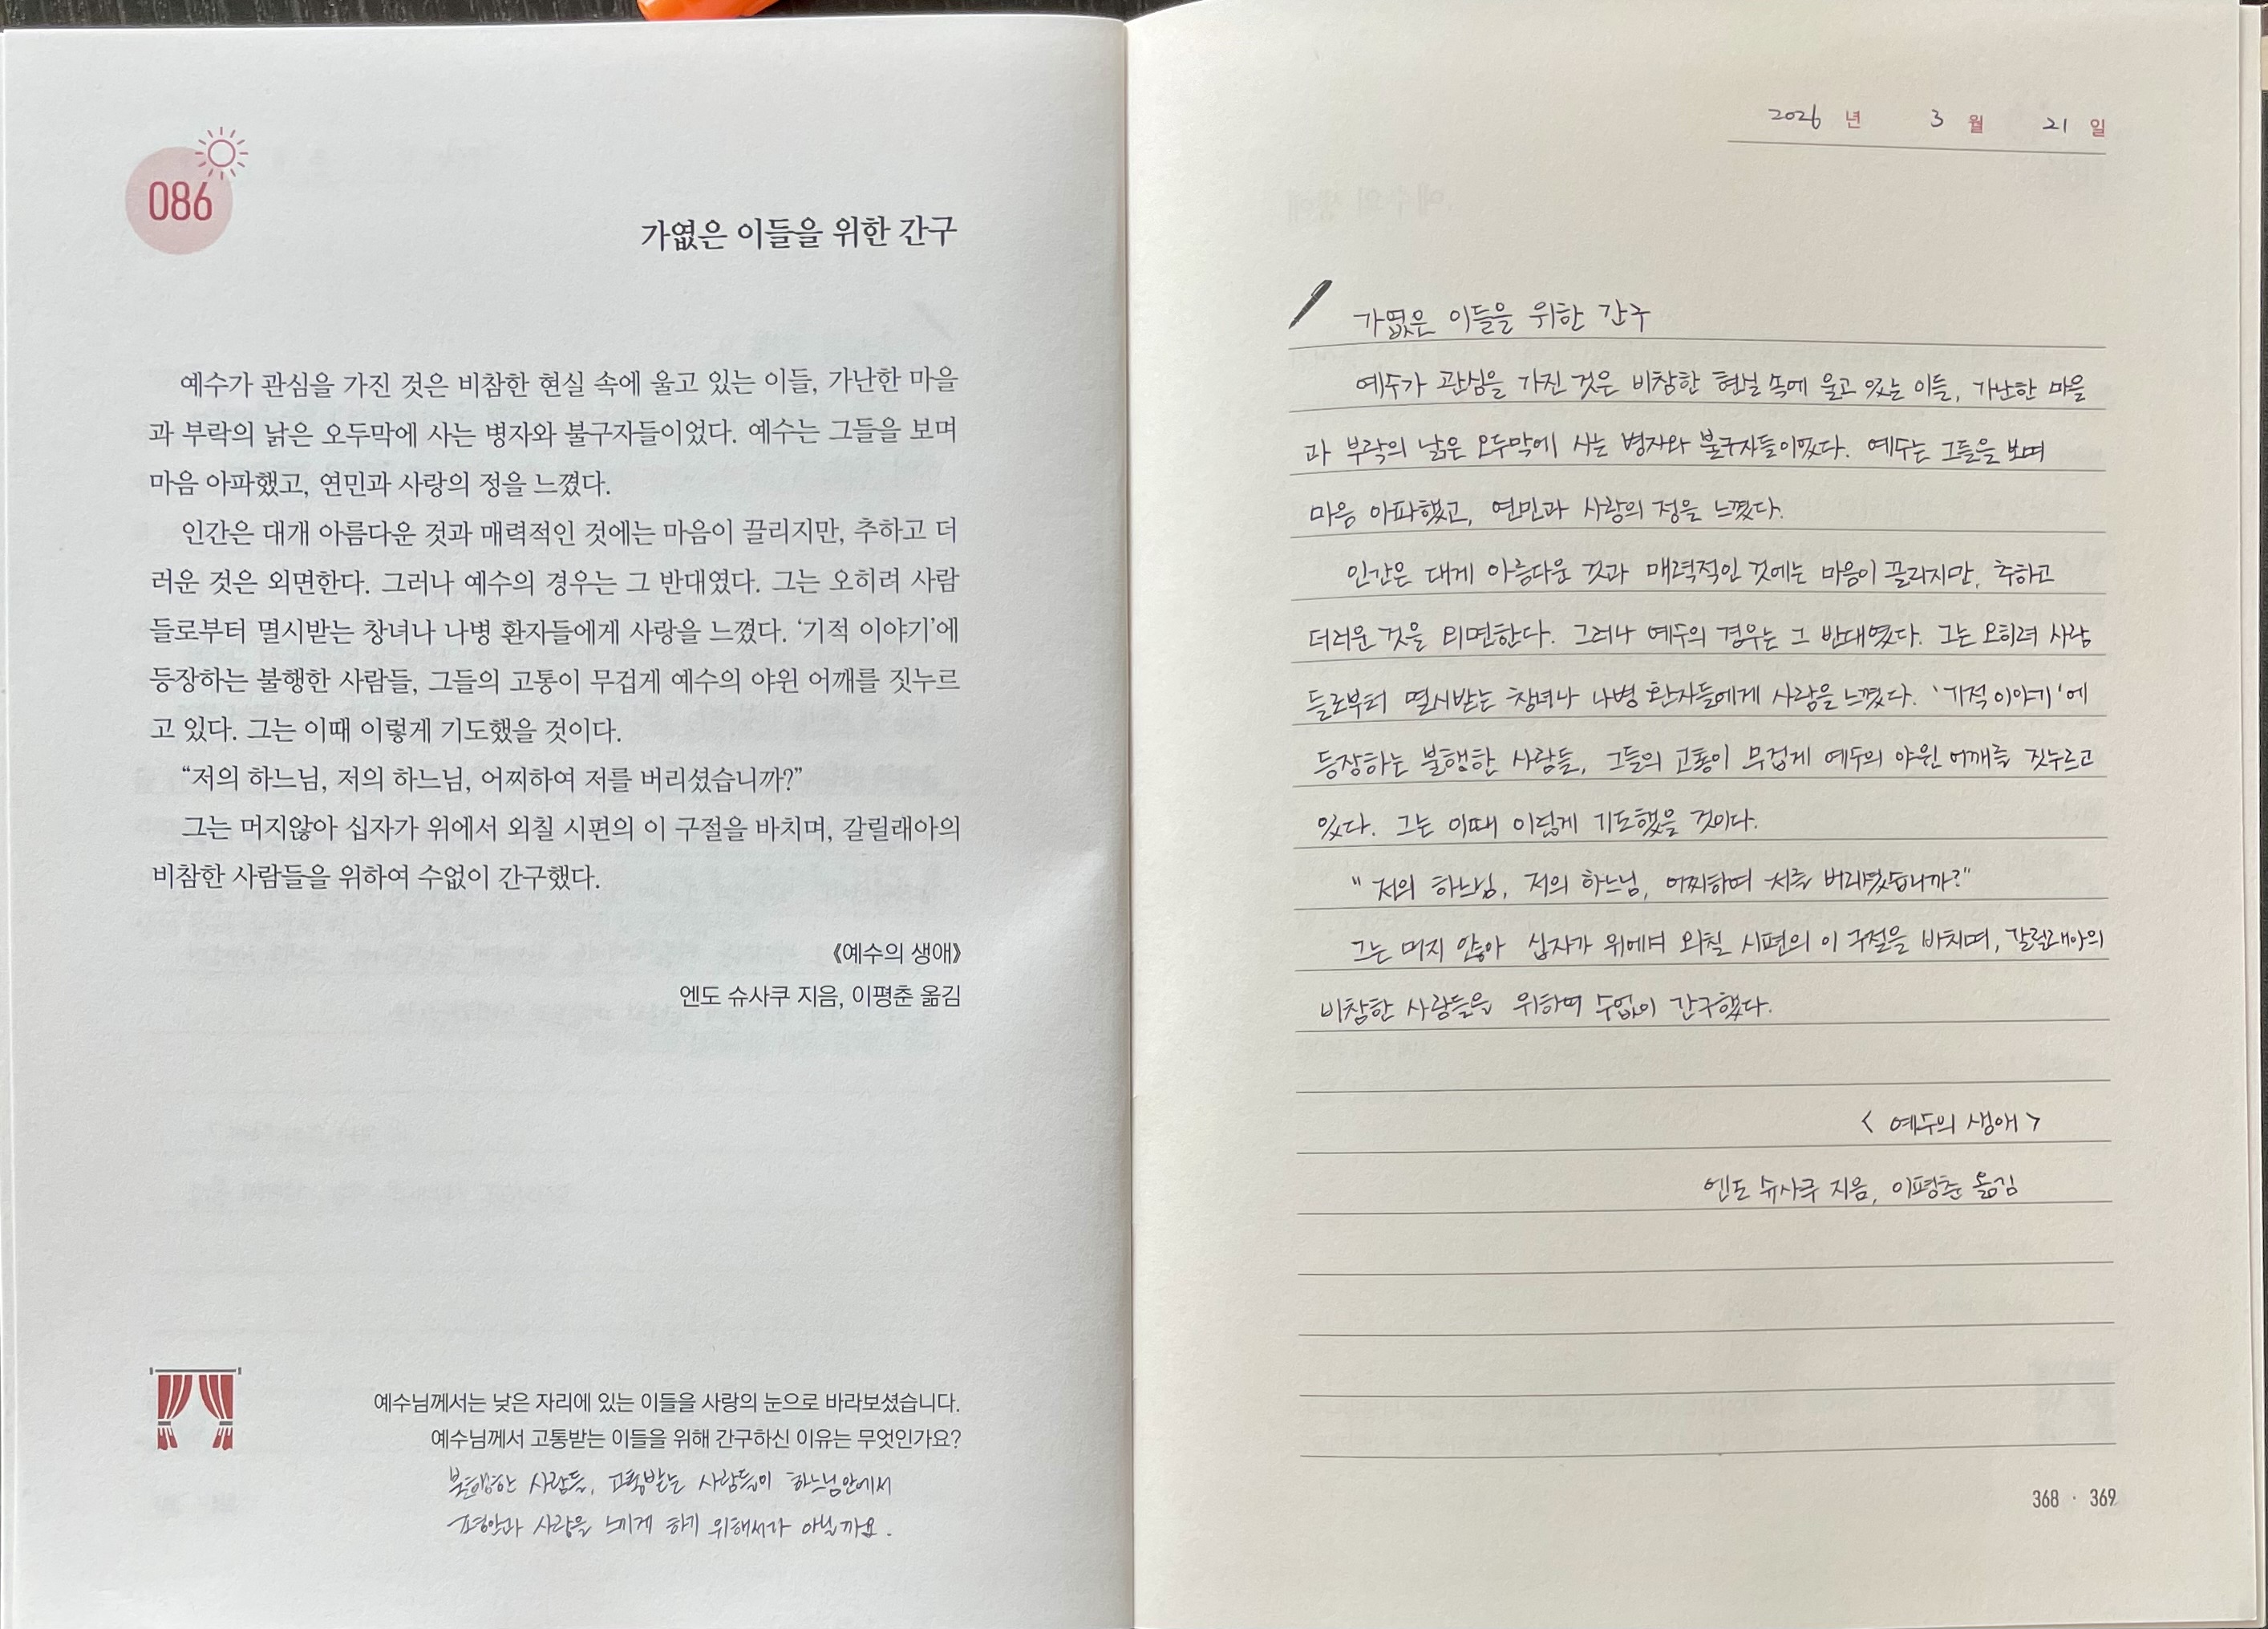 086
가엾은 이들을 위한 간구
예수가 관심을 가진 것은 비참한 현실 속에 울고 있는 이들, 가난한 마을
과 부락의 낡은 오두막에 사는 병자와 불구자들이었다. 예수는 그들을 보며
마음 아파했고, 연민과 사랑의 정을 느꼈다.
인간은 대개 아름다운 것과 매력적인 것에는 마음이 끌리지만, 추하고 더
러운 것은 외면한다. 그러나 예수의 경우는 그 반대였다. 그는 오히려 사람
들로부터 멸시받는 창녀나 나병 환자들에게 사랑을 느꼈다. ‘기적 이야기’에
등장하는 불행한 사람들, 그들의 고통이 무겁게 예수의 야윈 어깨를 짓누르
고 있다. 그는 이때 이렇게 기도했을 것이다.
“저의 하느님, 저의 하느님, 어찌하여 저를 버리셨습니까?”
그는 머지않아 십자가 위에서 외칠 시편의 이 구절을 바치며, 갈릴래아의
비참한 사람들을 위하여 수없이 간구했다.
《예수의 생애》
엔도 슈사쿠 지음, 이평춘 옮김
예수님께서는 낮은 자리에 있는 이들을 사랑의 눈으로 바라보셨습니다.
예수님께서 고통받는 이들을 위해 간구하신 이유는 무엇인가요?
불행한 사람들, 고통받는 사람들이 하느님안에서
평안과 사랑을 느끼게 하기 위해서가 아닐까요.
2026 년 3 월 21 일
가엾은 이들을 위한 간구
예수가 관심을 가진 것은 비참한 현실 속에 울고 있는 이들, 가난한 마을
과 부락의 낡은 오두막에 사는 병자와 불구자들이었다. 예수는 그들을 보며
마음 아파했고, 연민과 사랑의 정을 느꼈다.
인간은 대게 아름다운 것과 매력적인 것에는 마음이 끌리지만, 추하고
더러운 것을 외면한다. 그러나 예수의 경우는 그 반대였다. 그는 오히려 사람
들로부터 멸시받는 창녀나 나병 환자들에게 사랑을 느꼈다. '기적 이야기'에
등장하는 불행한 사람들, 그들의 고통이 무겁게 예수의 야윈 어깨를 짓누르고
있다. 그는 이때 이렇게 기도했을 것이다.
"저의 하느님, 저의 하느님, 어찌하여 저를 버리셨습니까?"
그는 머지 않아 십자가 위에서 외칠 시편의 이 구절을 바치며, 갈릴래아의
비참한 사람들을 위하여 수없이 간구했다.
< 예수의 생애 >
엔도 슈사쿠 지음, 이평춘 옮김
368 · 369